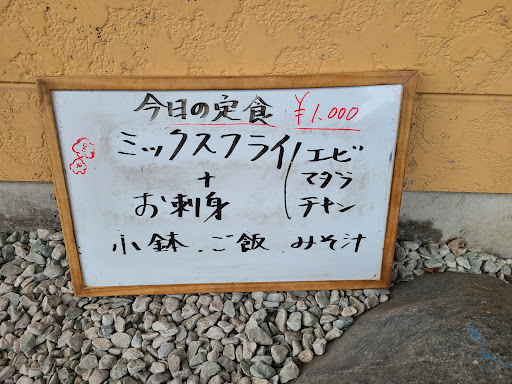 今日の定食 ¥1.000
ミックスフライ(エビ
マダラ
チキン
+
お刺身
小鉢.ご飯.みそ汁